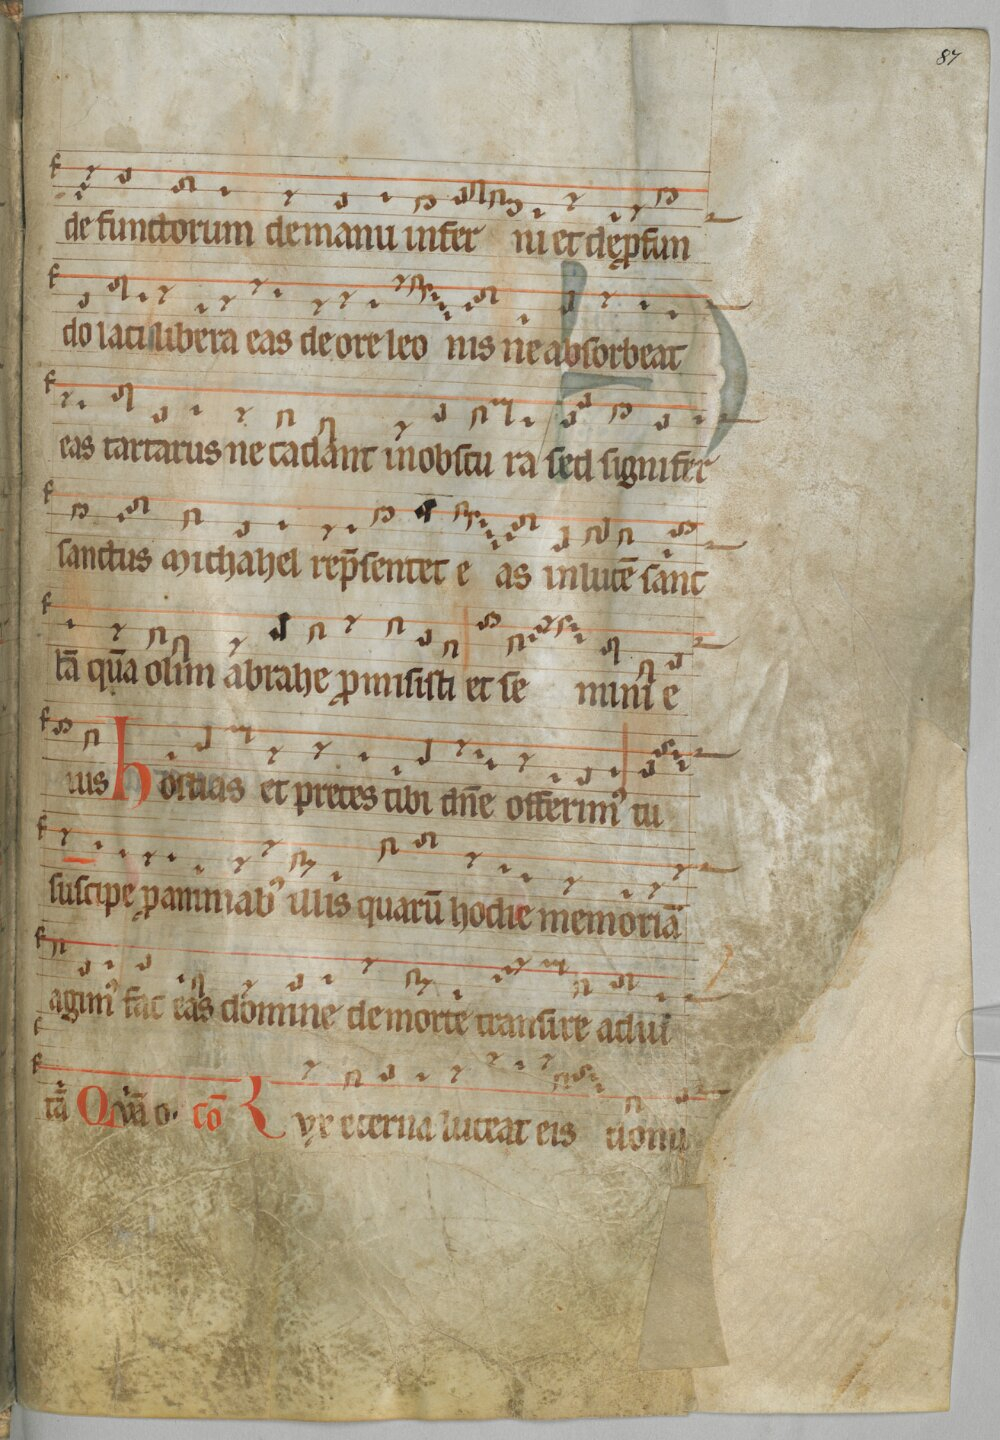 87
defunctorum de manu infer ni et de ꝓfun
do laci libera eas de ore leo nis ne absorbeat
eas tartarus ne cadant in obscu ra sed signifer
sanctus michahel rep̄sentet e as in lucē sanc
tā quā olim abrahe ꝓmisisti et se mini e
ius hostias et preces tibi dn̄e offerimꝰ tu
suscipe ꝓ animabꝰ illis quarū hodie memoriā
agimꝰ fac eas domine de morte transire ad ui
tā Quā o. cō
ux eterna luceat eis domi